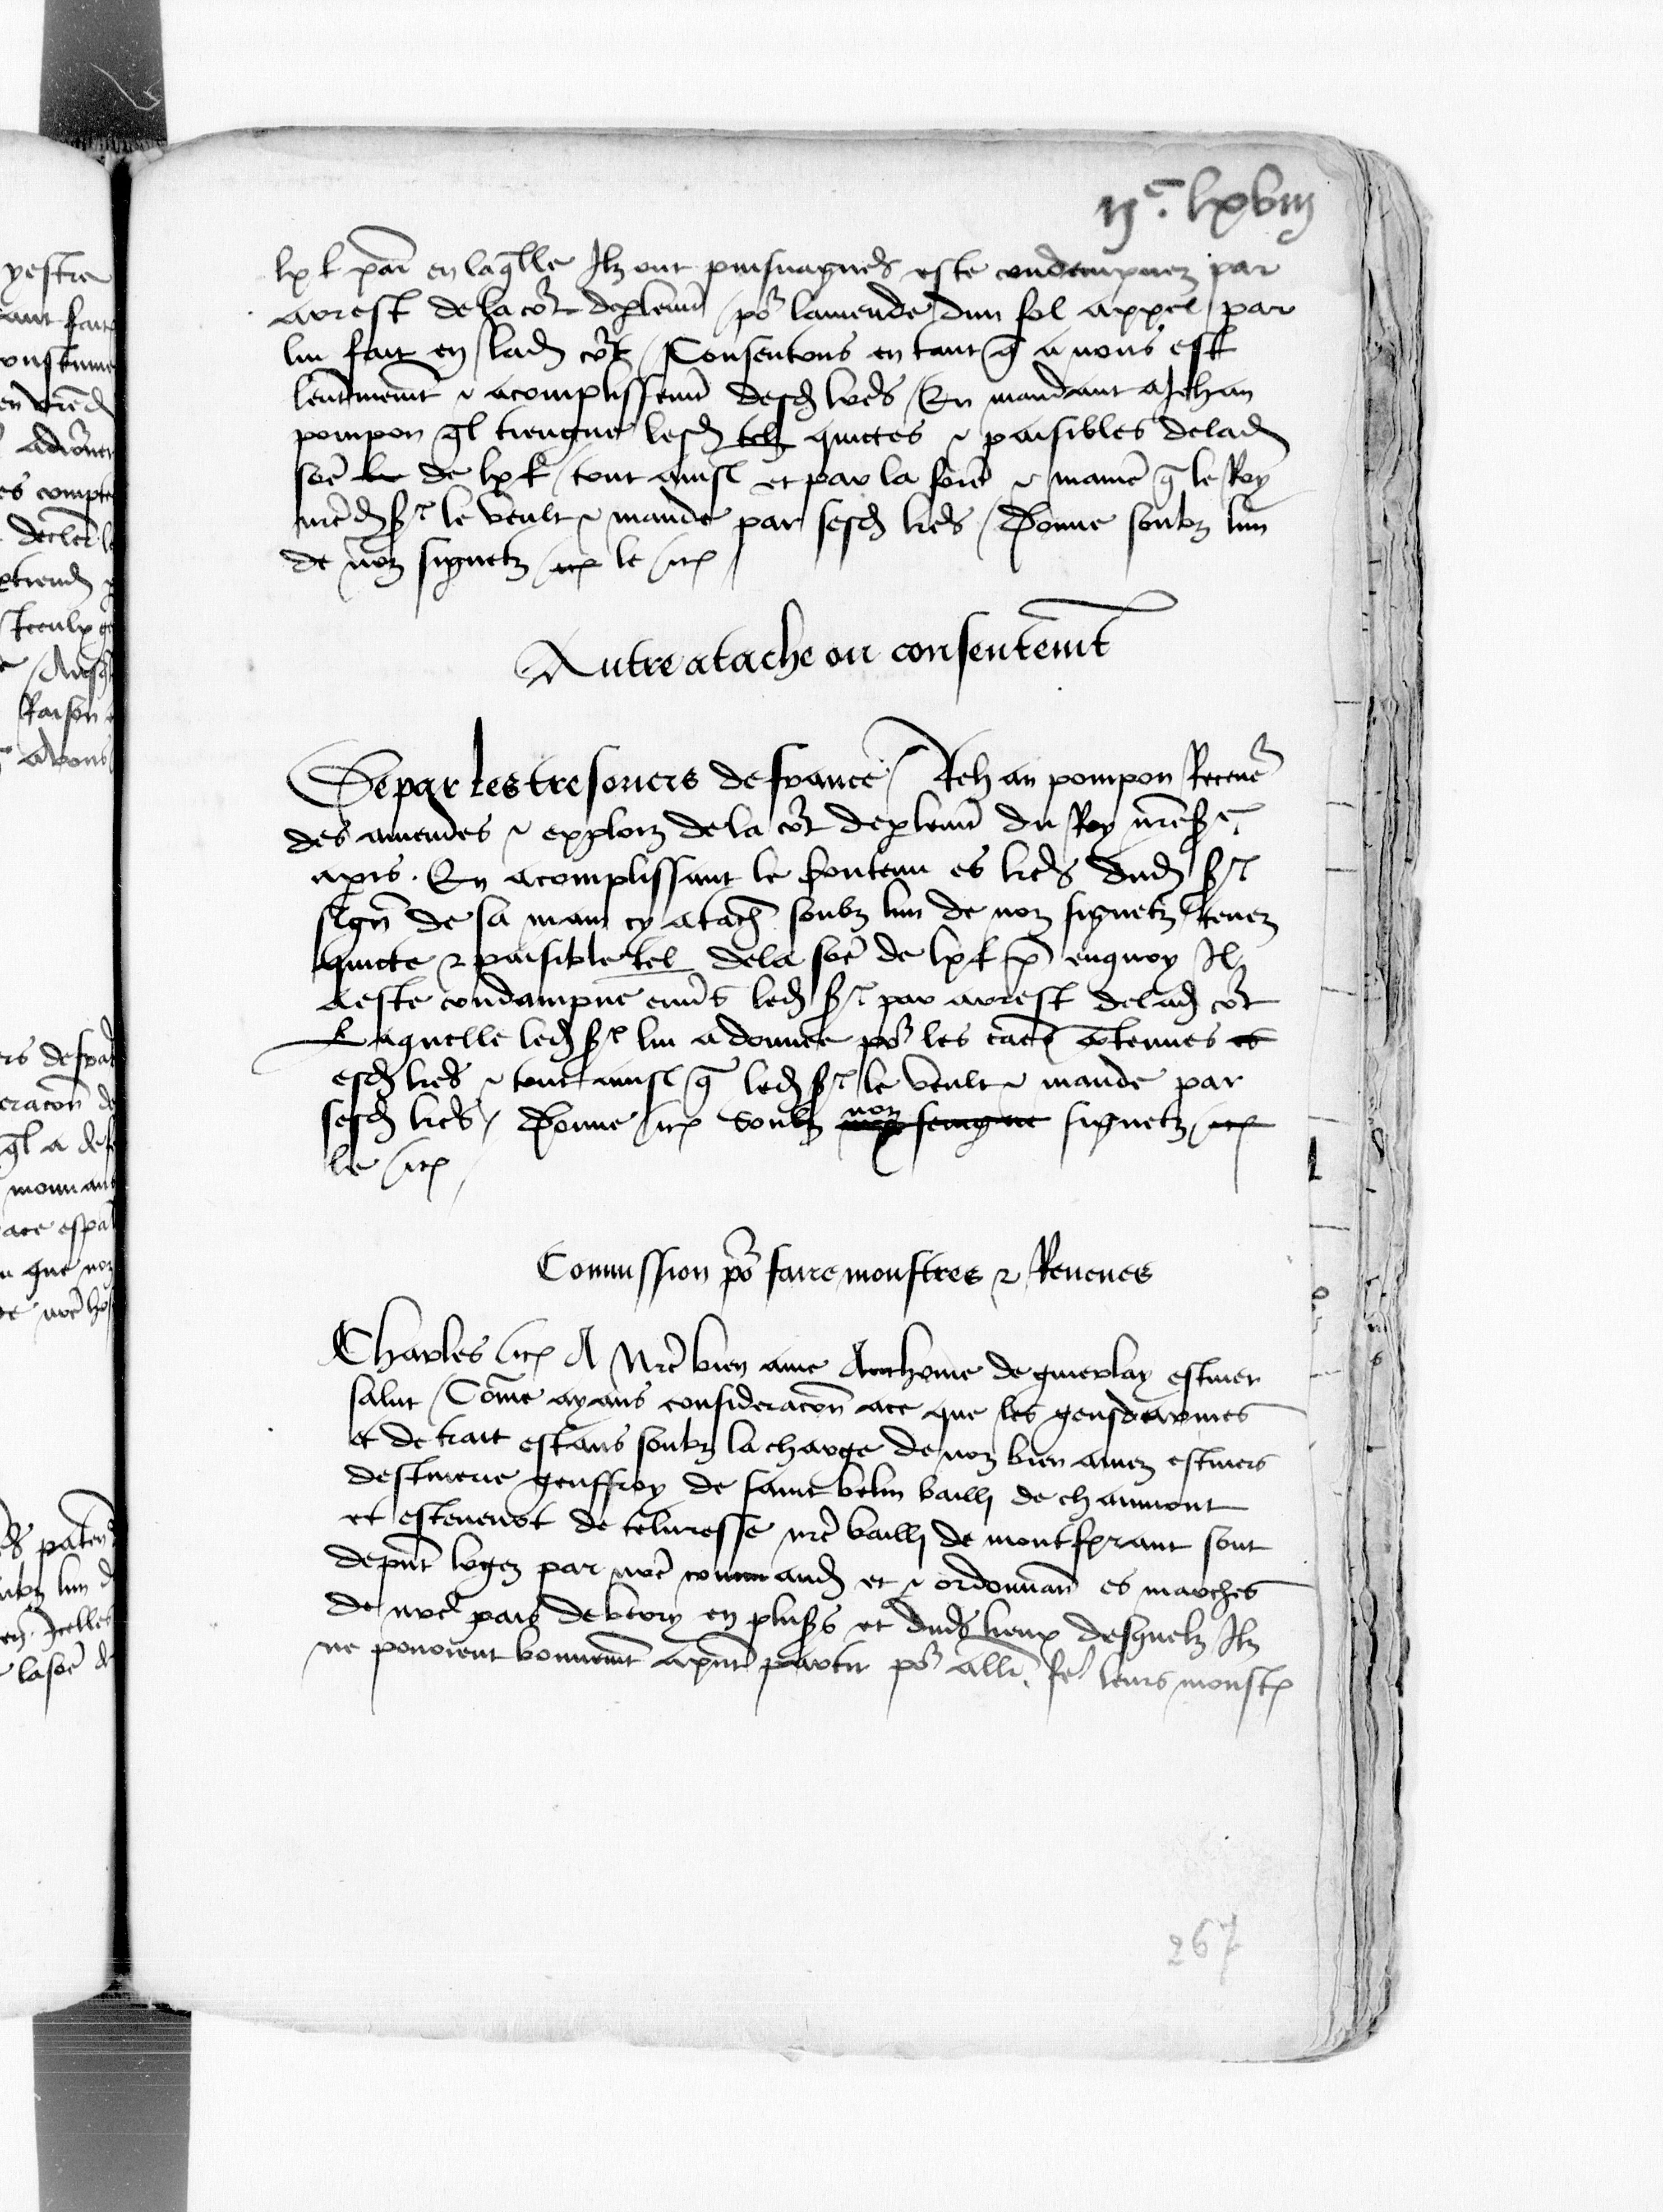 IIᶜ. lxviij
lx l par̃ en laq̃lle Ilz ont puisnagueres este condempnez par
arrest de la co͛t de p̱lem̃t / po͛ lamende dun fol appel / par
lui fait en lad̃ co͛t / Consentons en tant q̃ a nous est
lent̃inem̃t & acomplissem̃t desd̃ lr̃es / En mandant a Jehan
pompon q̃l tiengne lesd̃ telz quictes & paisibles de lad̃
so̅e̅ de lx l̃ / tout ainsi et par la for̃e & manie͛ q̃ le Roy
nr̃ed̃ s͛r le veult & mande par sesd̃ lr̃es / Donne soubz lun
de noz signetz etc̃ le etc̃
Autre atache ou consentem̃t
De par les tresoriers de france / Jehan pompon Receue͛
des amendes & exploiz de la co͛t de p̱lem̃t du Roy nr̃e s͛r
a p̱is. En acomplissant le contenu es lr̃es dud̃ s͛r
sign̅ de sa main cy atach̃ soubz lun de noz signetz / tenez
quicte & paisible tel de la so̅e̅ de lx l̃ p̱ en quoy Il
a este condampne enu͛s led̃ s͛r par arrest de lad̃ co͛t
Laquelle led̃ s͛r lui a donnee po͛ les ca̅e̅s c̅tenues es
esd̃ lr̃es & tout ainsi q̃ led̃ s͛r le veult & mande par
sesd̃ lr̃es / Donne etc̃ soubz noz signetz etc̃
le etc̃
Commission po͛ faire monstres & Reueues
Charles etc̃ A Nr̃e bien ame Anthoine de guerlay escuier
salut / Co̅me ayans consideraco̅n ace que les gensdearmes
et de trait estans soubz la charge de noz bien amez escuiers
descuierie geuffroy de saint belin bailli de chaumont
et esteuenot de teluresse nr̃e bailli de montferrant sont
de pn̅t logez par nr̃e command̃ et & ordonnan̅ es marches
de nr̃e pais de berry en plus͛s et diu͛s lieux desquelz Ilz
ne pouoient bonnem̃t a pn̅t partir po͛ all͛ fe͛ leurs monst͛
267